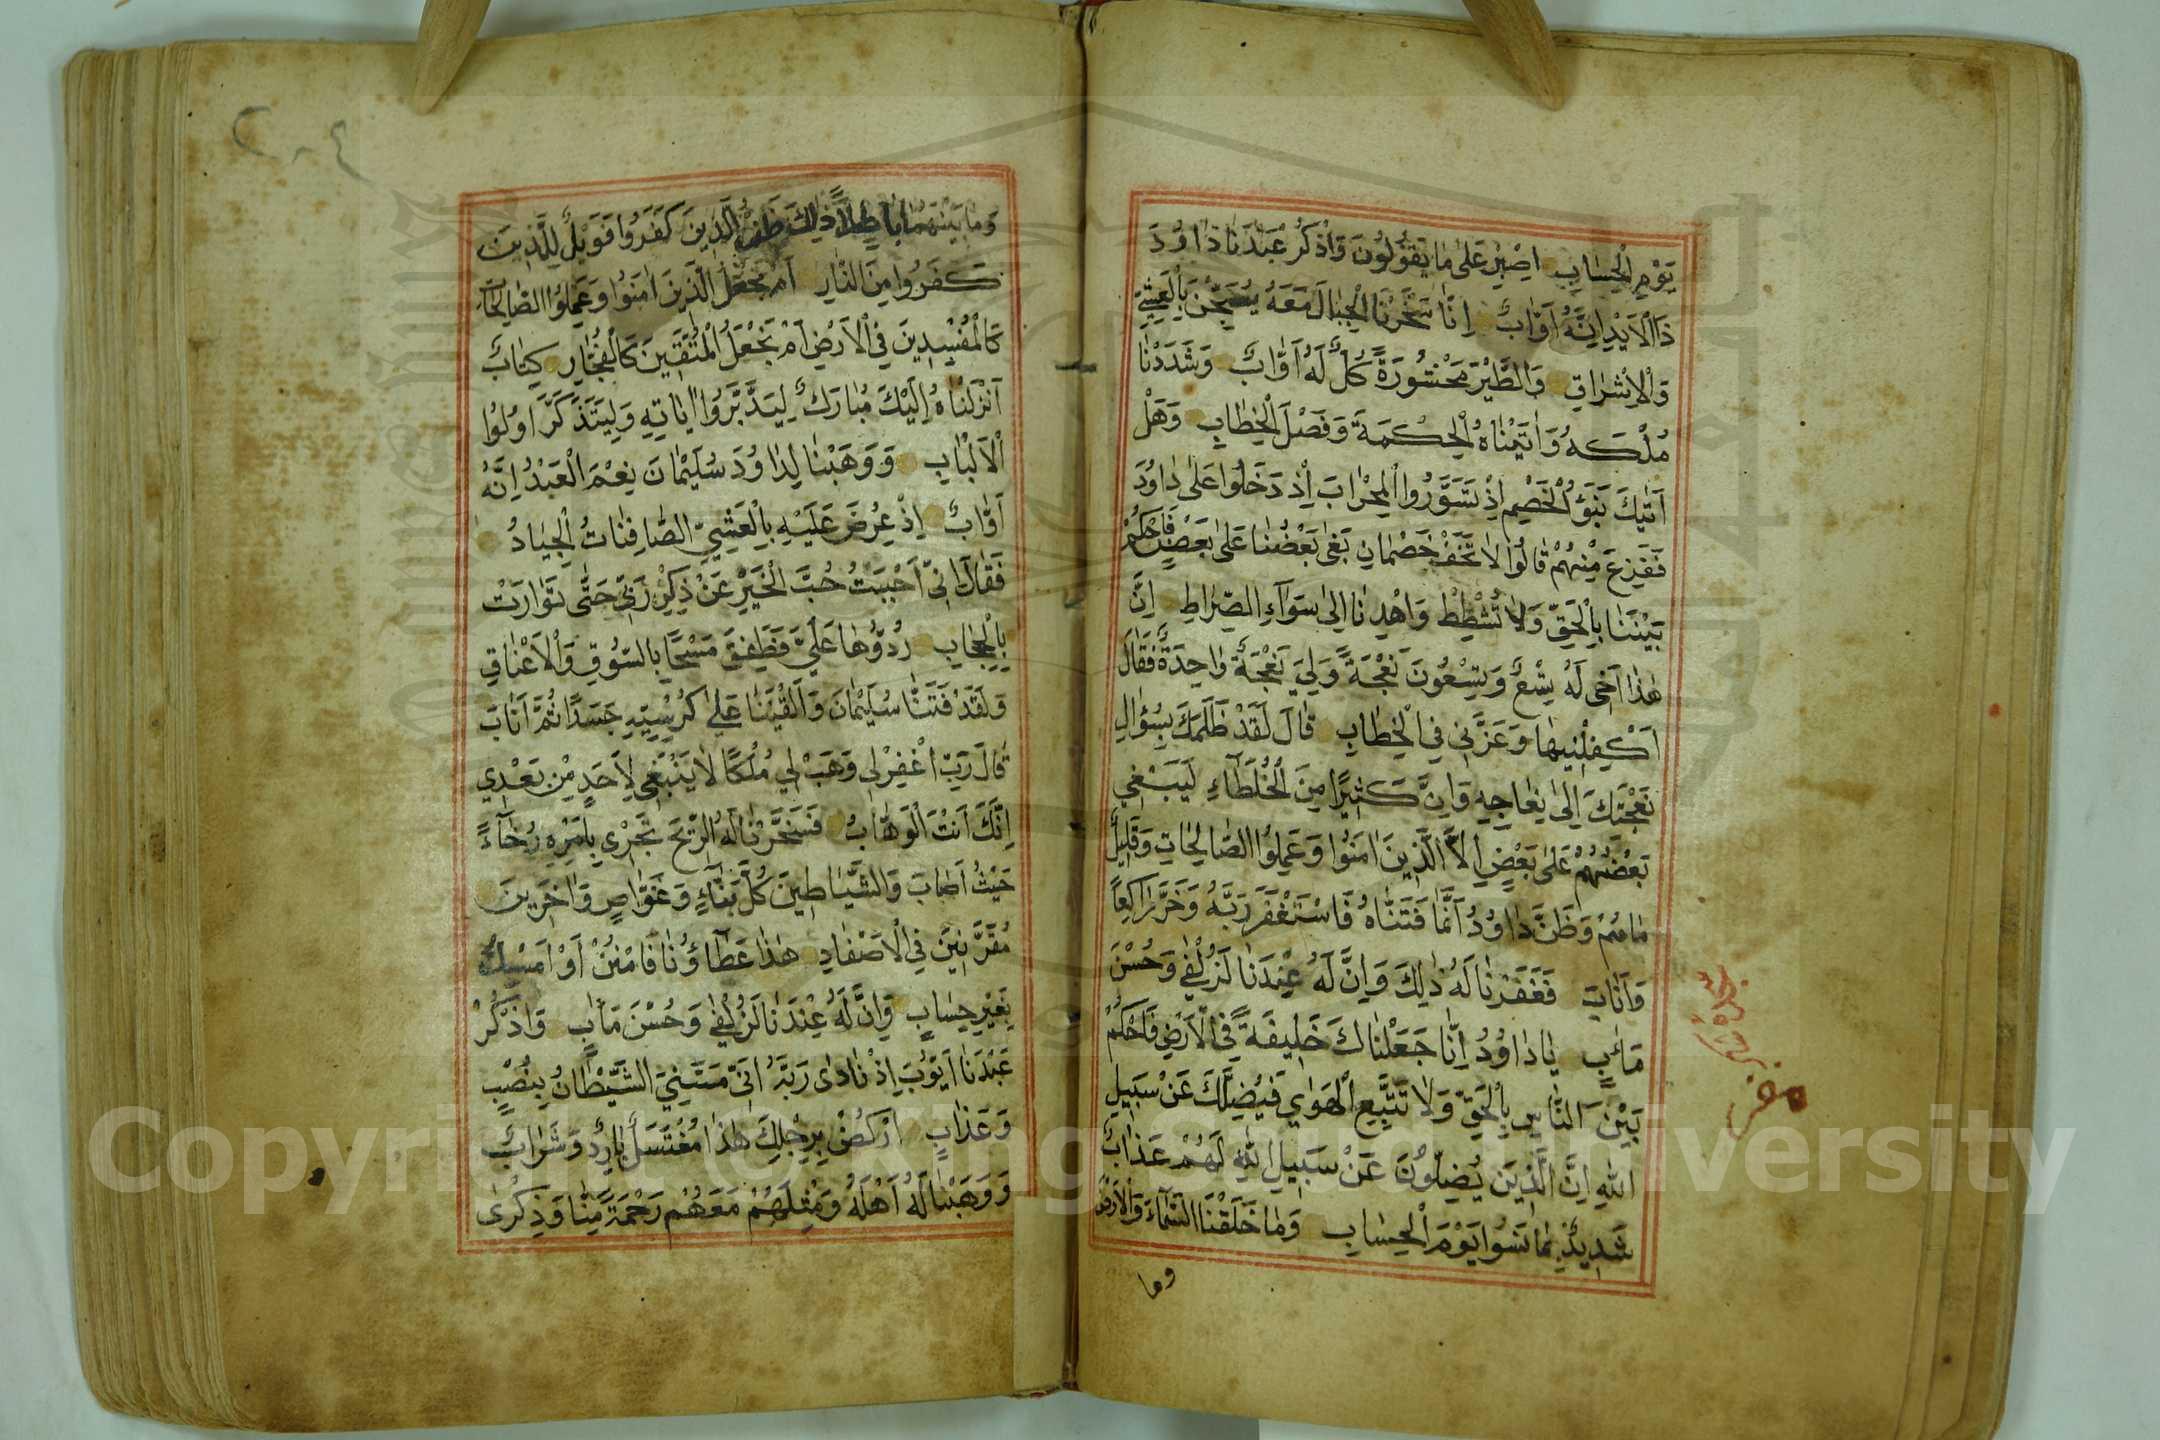 يَوْمِ الْحِسَابِ اصْبِرْ عَلىٰ مَا يَقُولُونَ وَاذْكُرْ عَبْدَنَا دَاوُدَ
ذَا الْاَيْدِ اِنَّهُ اَوَّابٌ اِنَّا سَخَّرْنَا الْجِبَالَ مَعَهُ يُسَبِّحْنَ بِالْعَشِيِّ
وَالْاِشْرَاقِ وَالطَّيْرَ مَحْشُورَةً كُلٌّ لَهُ اَوَّابٌ وَشَدَدْنَا
مُلْكَهُ وَاٰتَيْنَاهُ الْحِكْمَةَ وَفَصْلَ الْخِطَابِ وَهَلْ
اَتٰيكَ نَبَؤُا الْخَصْمِ اِذْ تَسَوَّرُوا الْمِحْرَابَ اِذْ دَخَلُوا عَلىٰ دَاوُدَ
فَفَزِعَ مِنْهُمْ قَالُوا لَا تَخَفْ خَصْمَانِ بَغٰى بَعْضُنَا عَلىٰ بَعْضٍ فَاحْكُمْ
بَيْنَنَا بِالْحَقِّ وَلَا تُشْطِطْ وَاهْدِنَا اِلىٰ سَوَآءِ الصِّرَاطِ اِنَّ
هٰذَا اَخٖى لَهُ تِسْعٌ وَتِسْعُونَ نَعْجَةً وَلِيَ نَعْجَةٌ وَاحِدَةٌ فَقَالَ
اَكْفِلْنِيهَا وَعَزَّنٖى فِي الْخِطَابِ قَالَ لَقَدْ ظَلَمَكَ بِسُؤَالِ
نَعْجَتِكَ اِلىٰ نِعَاجِهِ وَاِنَّ كَثِيرًا مِنَ الْخُلَطَآءِ لَيَبْغٖي
بَعْضُهُمْ عَلىٰ بَعْضٍ اِلَّا الَّذِينَ اٰمَنُوا وَعَمِلُوا الصَّالِحَاتِ وَقَلِيلٌ
مَا هُمْ وَظَنَّ دَاوُدُ اَنَّمَا فَتَنَّاهُ فَاسْتَغْفَرَ رَبَّهُ وَخَرَّ رَاكِعًا
وَاَنَابَ فَغَفَرْنَا لَهُ ذٰلِكَ وَاِنَّ لَهُ عِنْدَنَا لَزُلْفٰى وَحُسْنَ
مَاٰبٍ يَا دَاوُدُ اِنَّا جَعَلْنَاكَ خَلِيفَةً فِي الْاَرْضِ فَاحْكُمْ
بَيْنَ النَّاسِ بِالْحَقِّ وَلَا تَتَّبِعِ الْهَوٰي فَيُضِلَّكَ عَنْ سَبِيلِ
اللّٰهِ اِنَّ الَّذِينَ يُضِلُّونَ عَنْ سَبِيلِ اللّٰهِ لَهُمْ عَذَابٌ
شَدِيدٌ بِمَا نَسُوا يَوْمَ الْحِسَابِ وَمَا خَلَقْنَا السَّمَآءَ وَالْاَرْضَ
وما
٢٠٤
وَمَا بَيْنَهُمَا بَاطِلًا ذٰلِكَ ظَنُّ الَّذِينَ كَفَرُوا فَوَيْلٌ لِلَّذِينَ
كَفَرُوا مِنَ النَّارِ اَمْ نَجْعَلُ الَّذِينَ اٰمَنُوا وَعَمِلُوا الصَّالِحَاتِ
كَالْمُفْسِدِينَ فِي الْاَرْضِ اَمْ نَجْعَلُ الْمُتَّقِينَ كَالْفُجَّارِ كِتَابٌ
اَنْزَلْنَاهُ اِلَيْكَ مُبَارَكٌ لِيَدَّبَّرُوا اٰيَاتِهِ وَلِيَتَذَكَّرَ اُولُوا
الْاَلْبَابِ وَوَهَبْنَا لِدَاوُدَ سُلَيْمَانَ نِعْمَ الْعَبْدُ اِنَّهُ
اَوَّابٌ اِذْ عُرِضَ عَلَيْهِ بِالْعَشِيِّ الصَّافِنَاتُ الْجِيَادُ
فَقَالَ اِنّٖى اَحْبَبْتُ حُبَّ الْخَيْرِ عَنْ ذِكْرِ رَبّٖي حَتّٰى تَوَارَتْ
بِالْحِجَابِ رُدُّوهَا عَلَيَّ فَطَفِقَ مَسْحًا بِالسُّوقِ وَالْاَعْنَاقِ
وَلَقَدْ فَتَنَّا سُلَيْمَانَ وَاَلْقَيْنَا عَلىٰ كُرْسِيِّهِ جَسَدًا ثُمَّ اَنَابَ
قَالَ رَبِّ اغْفِرْ لٖى وَهَبْ لٖي مُلْكًا لَا يَنْبَغٖى لِاَحَدٍ مِنْ بَعْدٖي
اِنَّكَ اَنْتَ الْوَهَّابُ فَسَخَّرْنَا لَهُ الرِّيحَ تَجْرٖي بِاَمْرِهِ رُخَآءً
حَيْثُ اَصَابَ وَالشَّيَاطِينَ كُلَّ بَنَّآءٍ وَغَوَّاصٍ وَاٰخَرِينَ
مُقَرَّنِينَ فِي الْاَصْفَادِ هٰذَا عَطَآؤُنَا فَامْنُنْ اَوْ اَمْسِكْ
بِغَيْرِ حِسَابٍ وَاِنَّ لَهُ عِنْدَنَا لَزُلْفٰى وَحُسْنَ مَاٰبٍ وَاذْكُرْ
عَبْدَنَا اَيُّوبَ اِذْ نَادٰى رَبَّهُ اَنّٖى مَسَّنِيَ الشَّيْطَانُ بِنُصْبٍ
وَعَذَابٍ اُرْكُضْ بِرِجْلِكَ هٰذَا مُغْتَسَلٌ بَارِدٌ وَشَرَابٌ
وَوَهَبْنَا لَهُ اَهْلَهُ وَمِثْلَهُمْ مَعَهُمْ رَحْمَةً مِنَّا وَذِكْرٰى
Copyright © King Saud University